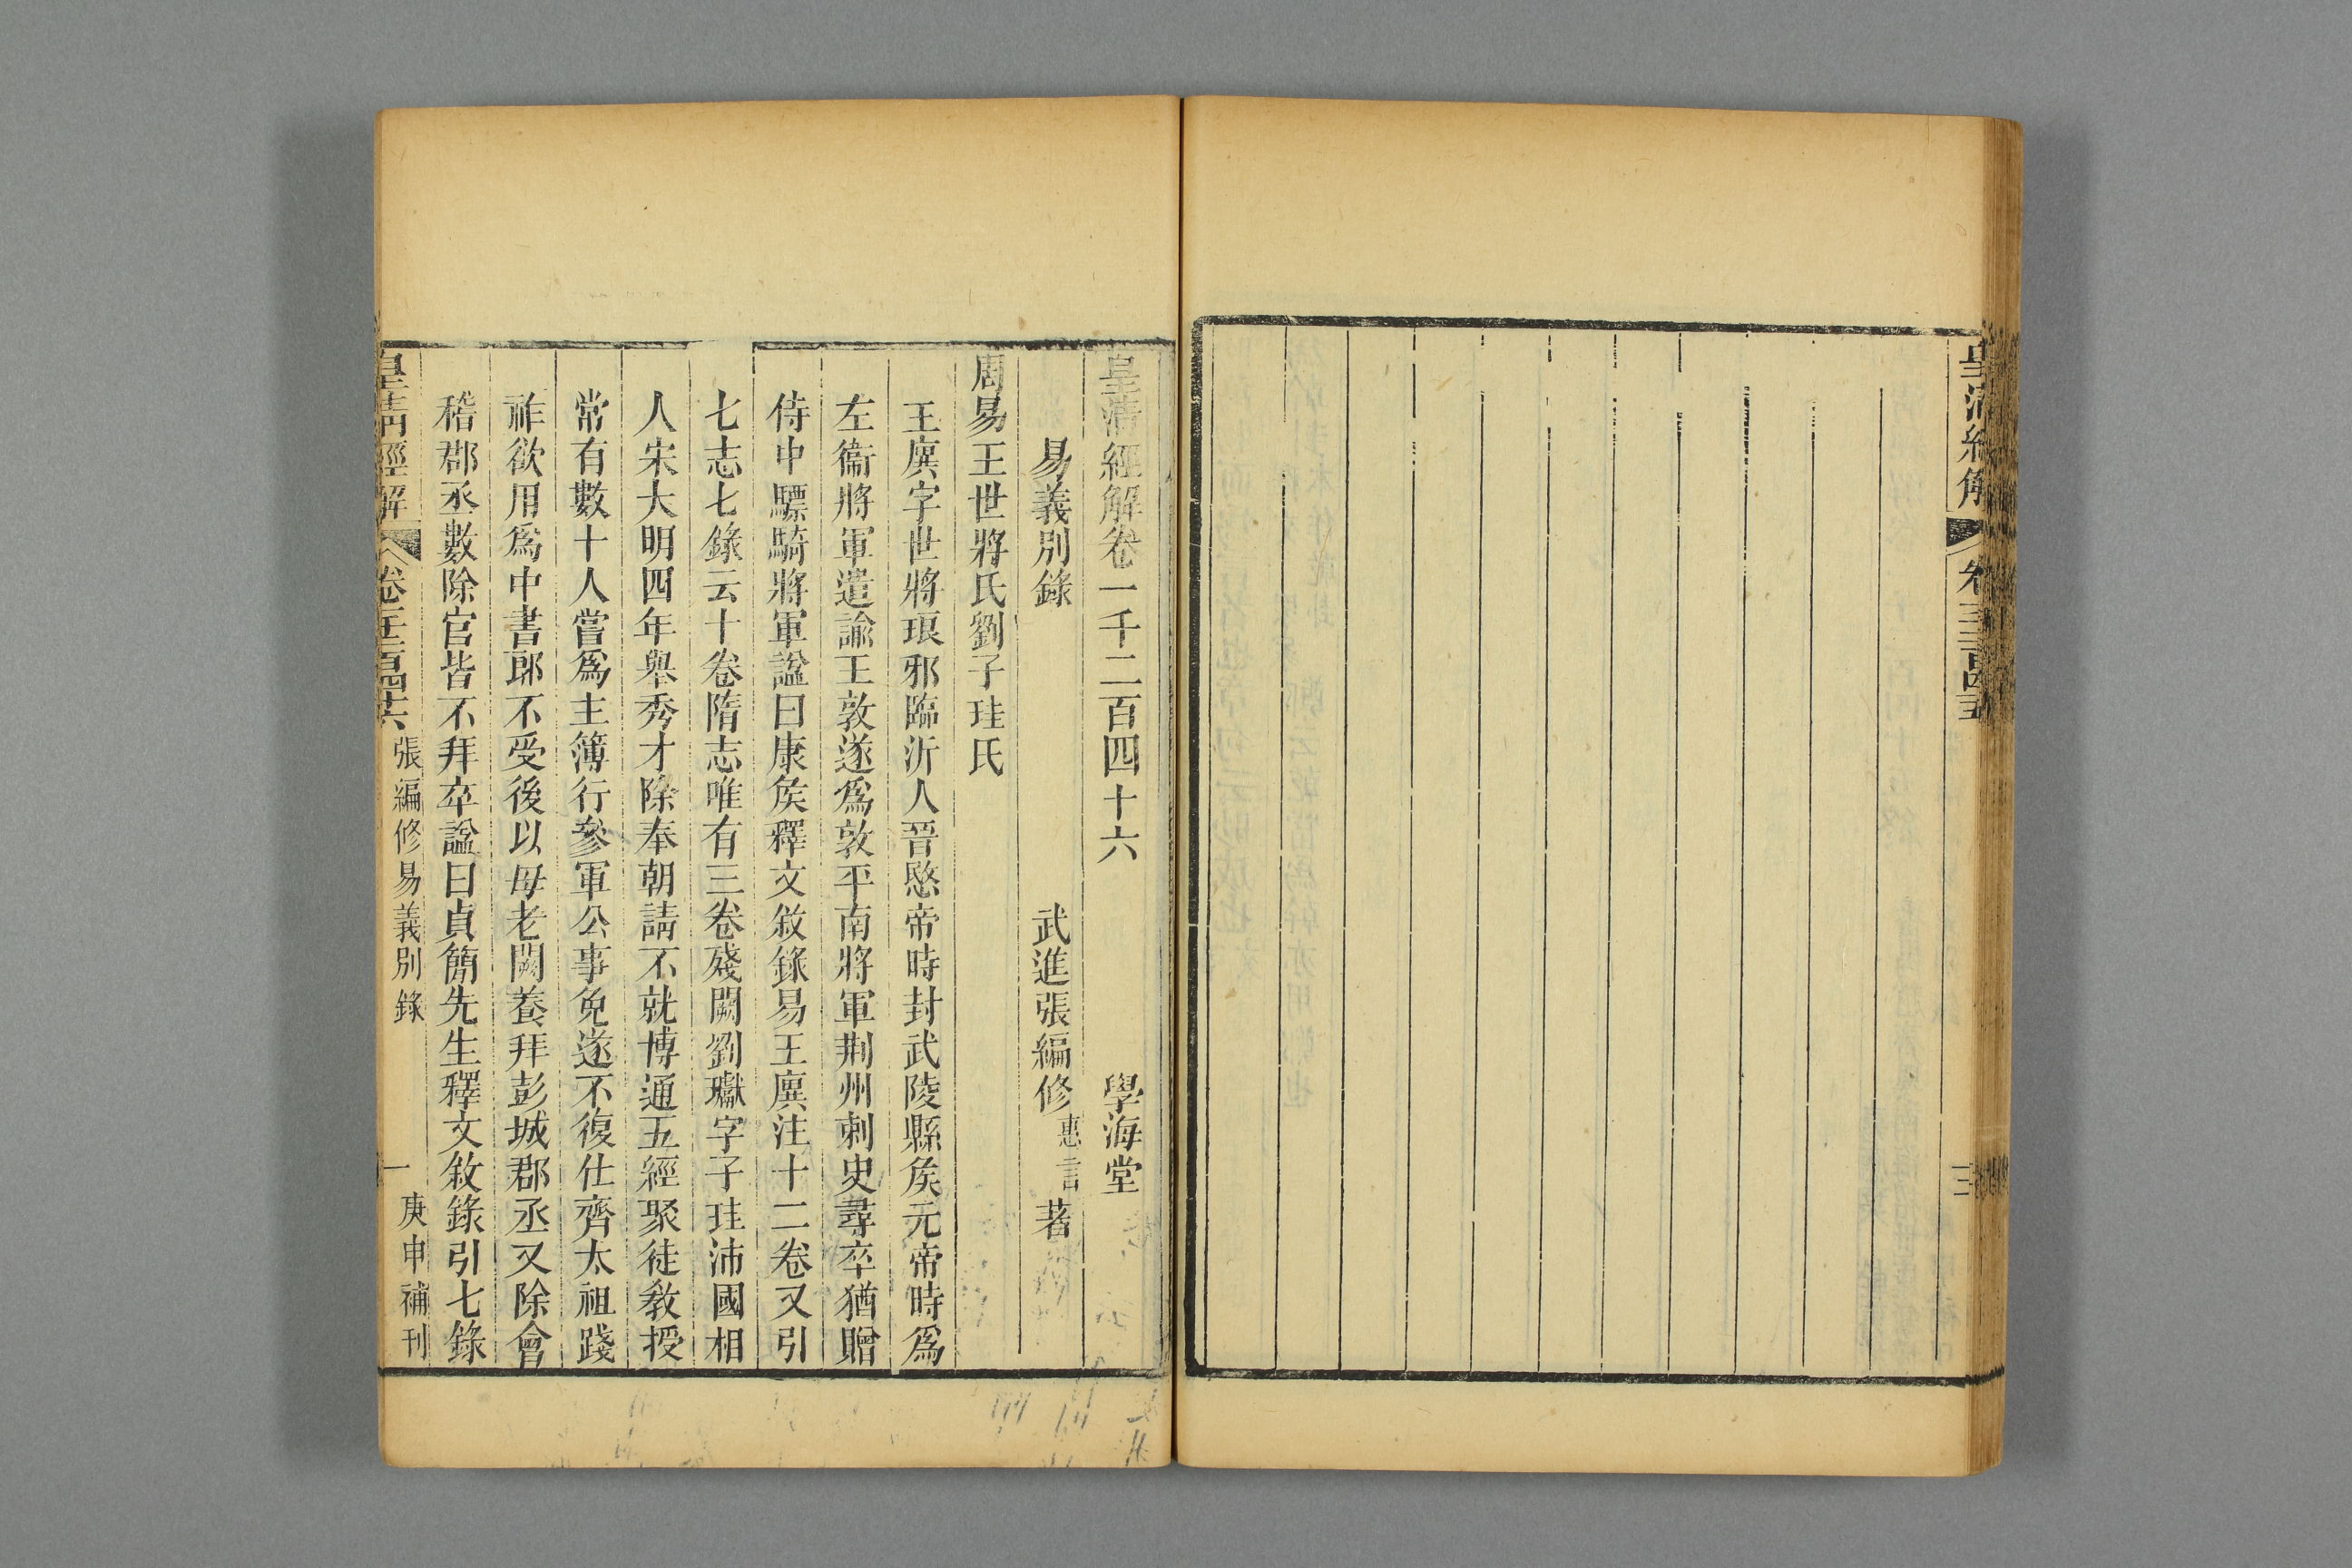 皇清經解
皇清經解卷一千二百四十六
學海堂
易義別錄
武進張編修惠言著
周易王世將氏劉子珪氏
王廙字世將琅邪臨沂人晉愍帝時封武陵縣矦元帝時爲
左衞將軍遣諭王敦遂爲敦平南將軍荆州刺史尋卒猶贈
侍中驃騎將軍諡曰康矦釋文敘錄易王廙注十二卷又引
七志七錄云十卷隋志唯有三卷殘闕劉瓛字子珪沛國相
人宋大明四年舉秀才除奉朝請不就博通五經聚徒敎授
常有數十人嘗爲主簿行參軍公事免遂不復仕齊太祖踐
祚欲用爲中書郎不受後以母老闕養拜彭城郡丞又除會
稽郡丞數除官皆不拜卒諡曰貞簡先生釋文敘錄引七錄
皇清經解
卷一千二百四十六
張編修易義別錄
一
庚申補刊